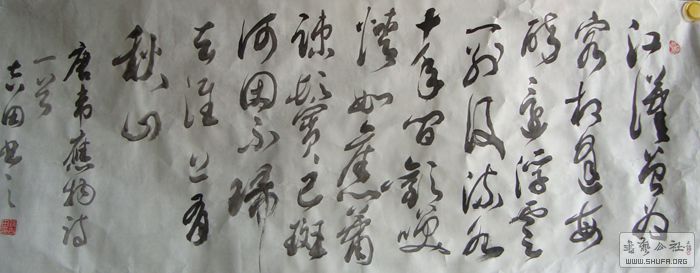 江漢曾為
客相逢每
醉還浮雲
一別後流水
十年間歡笑
情如舊蕭
疎鬢已斑
何因不歸
去淮上有
秋山
唐韋應物詩
一首
田書之
書藝公社
WWW.SHUFA.ORG